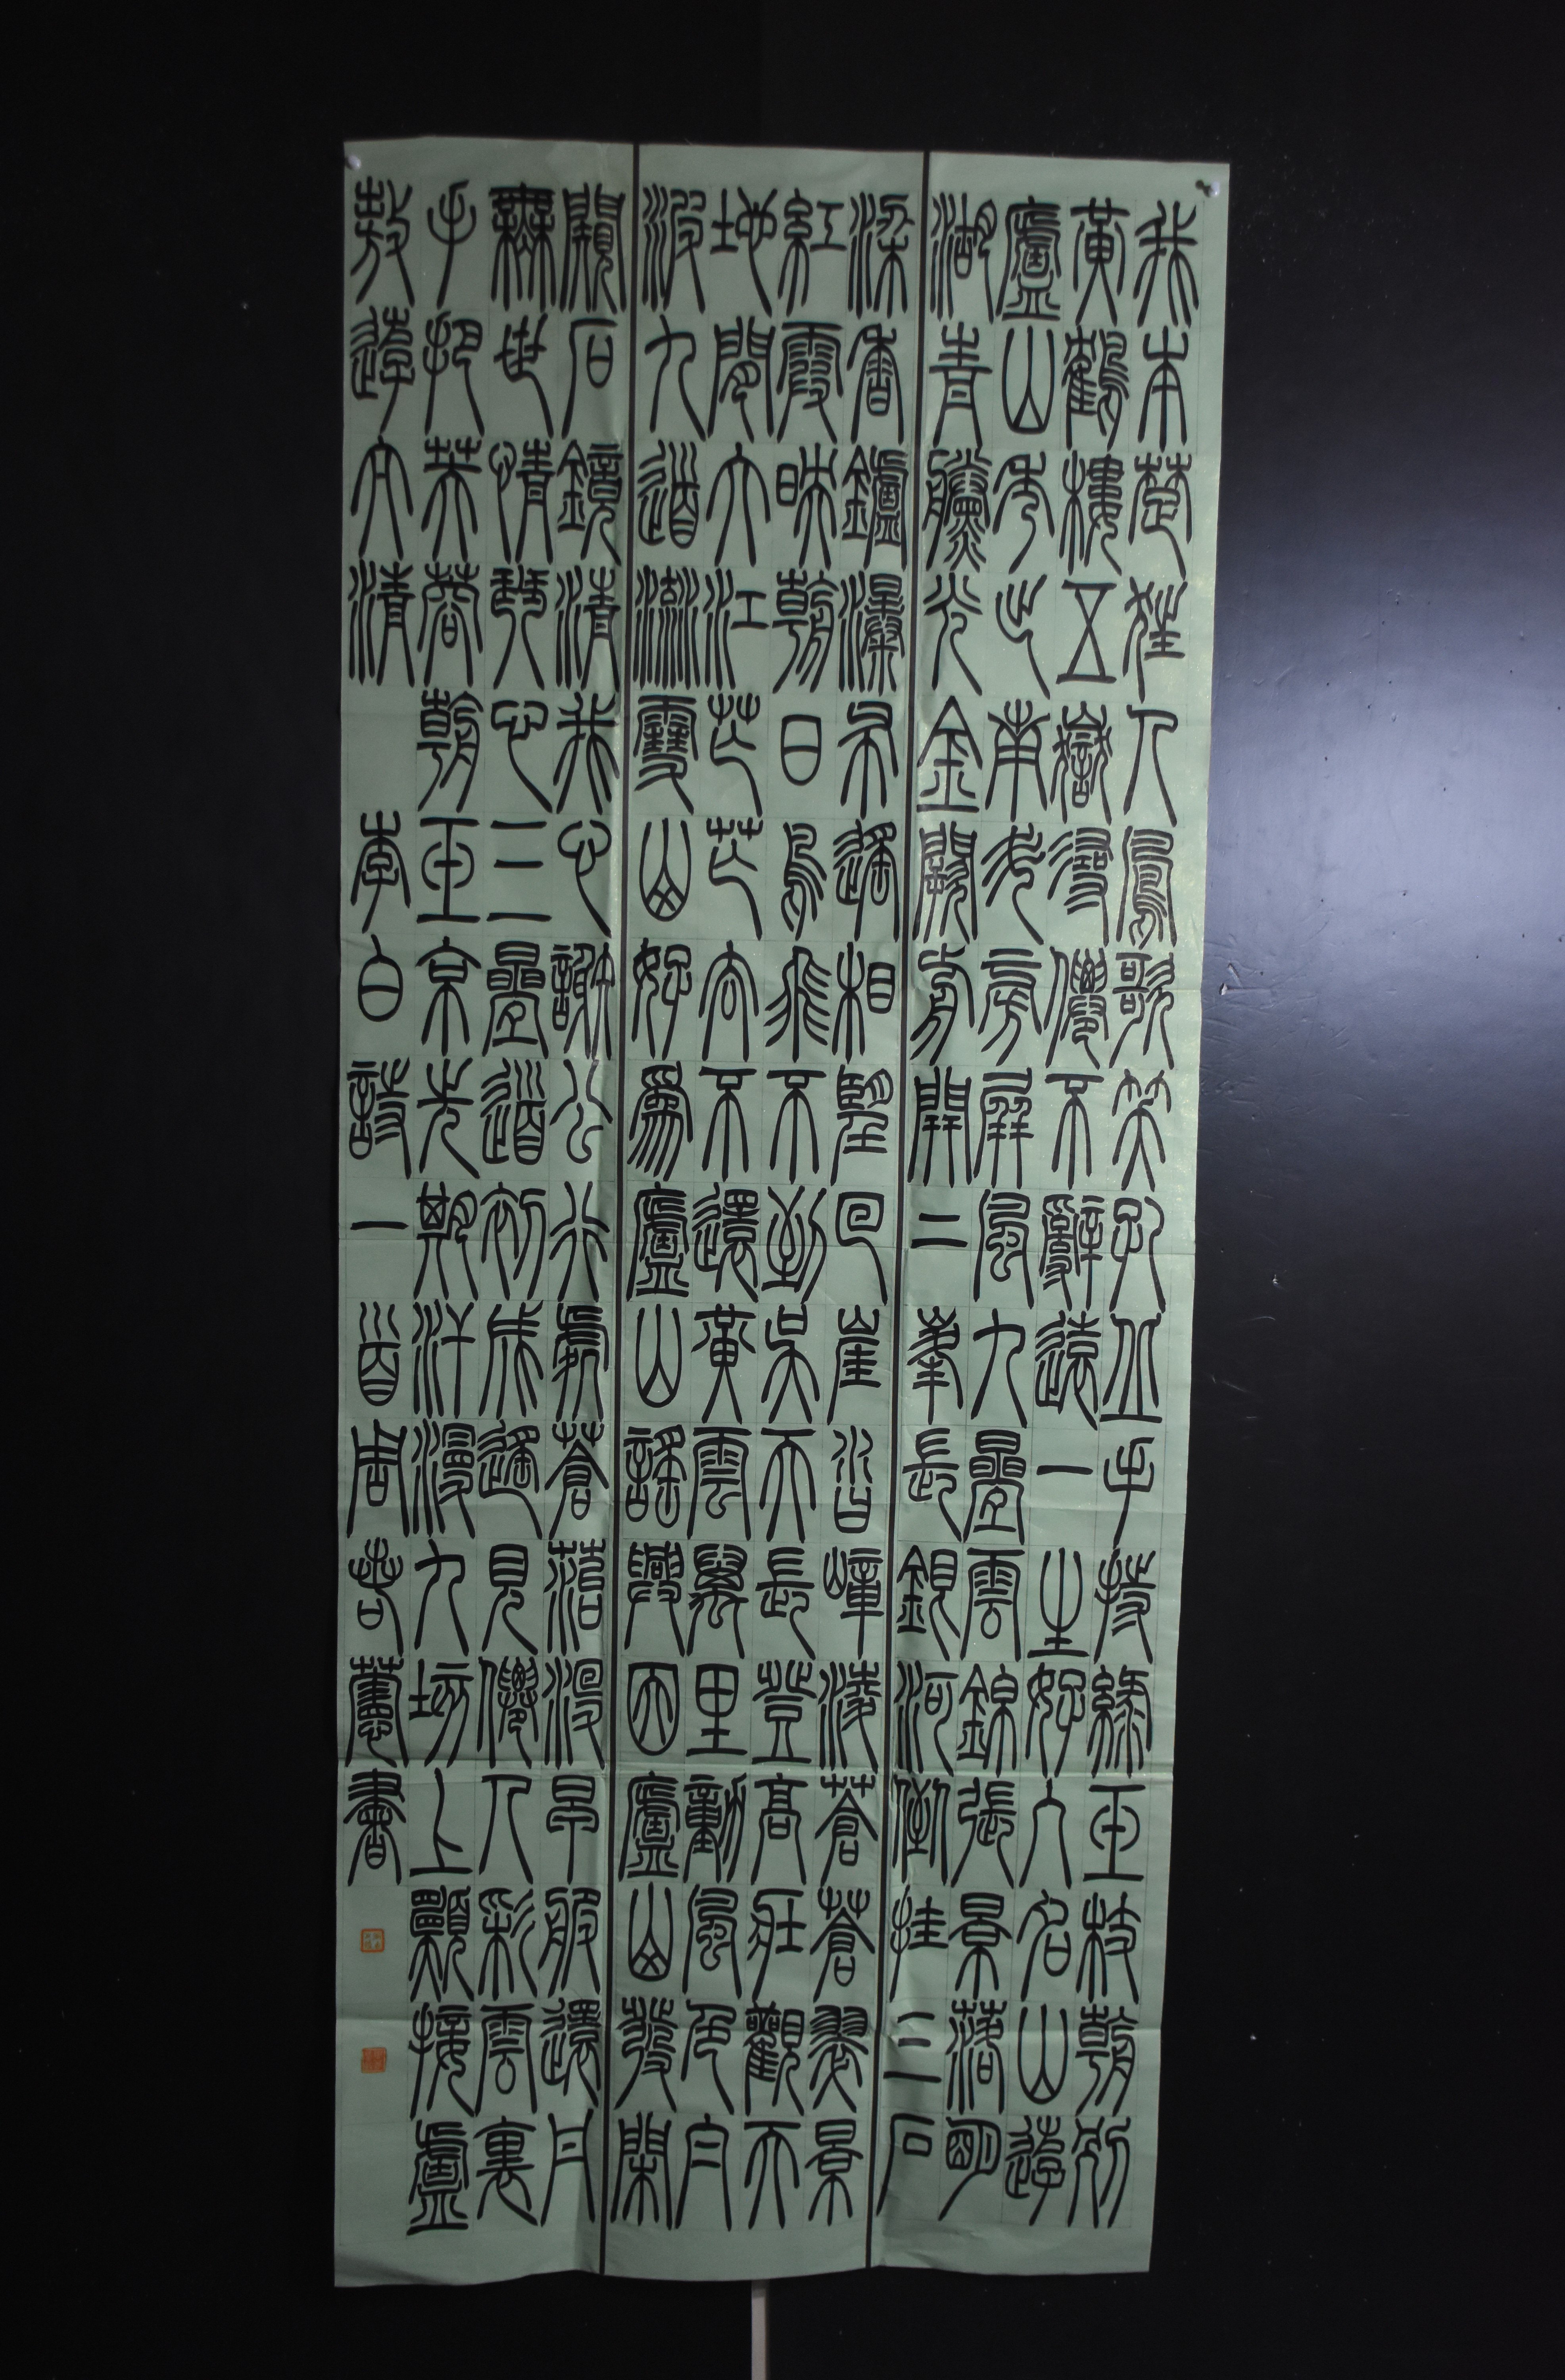 我本楚狂人鳳歌笑孔丘手持綠玉杖朝別
黃鶴樓五嶽尋僊不辭遠一生好入名山遊
盧山秀出南斗旁屏風九疊雲錦張景落明
湖青黱光金闕前開二峯長銀河倒挂三石
梁香鑪瀑布遙相望回崖沓嶂淩蒼蒼翠景
紅霞映朝日鳥飛不到吳天長登高壯觀天
地間大江芒芒去不還黃雲萬里動風色白
波九道流雪山好為盧山謠興因盧山發閑
闚石鏡清我心謝公行處蒼苔沒早服還丹
無世情琴心三疊道初成遙見僊人彩雲裏
手把芙蓉朝玉京先期汗漫九垓上願接盧
敖遊太清 李白詩一首周蕙書